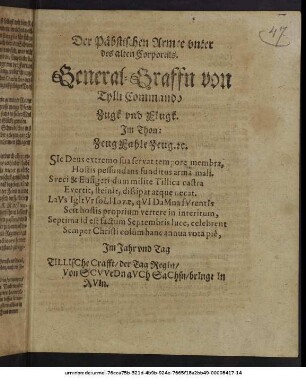 47
Der Päbstischen Armee vnter
des alten Corporals,
General-Graffn von
Tylli Commando
Zugk vnd Flugk.
Im Thon:
Zeug Fahle Zeug. ꝛc.
SIc Deus extremo sua servat tempore membra,
Hostis pessundans funditus arma mali.
Sveci & Saxigari dum milite Tillica castra
Evertit, sternit, dissipat atque necat.
LaVs IgItVr soLI Iovæ, qVI DaMna fVrentIs
Scit hostis proprium vertere in interitum,
Septima id est factum Septembris luce, celebrent
Semper Christi colum hanc annua vota piè,
Im Jahr vnd Tag
TILLIsChe Crafft / der Tag Regin /
Von SCVVeDn aVCh SaChsn / bringt In
RVIn.